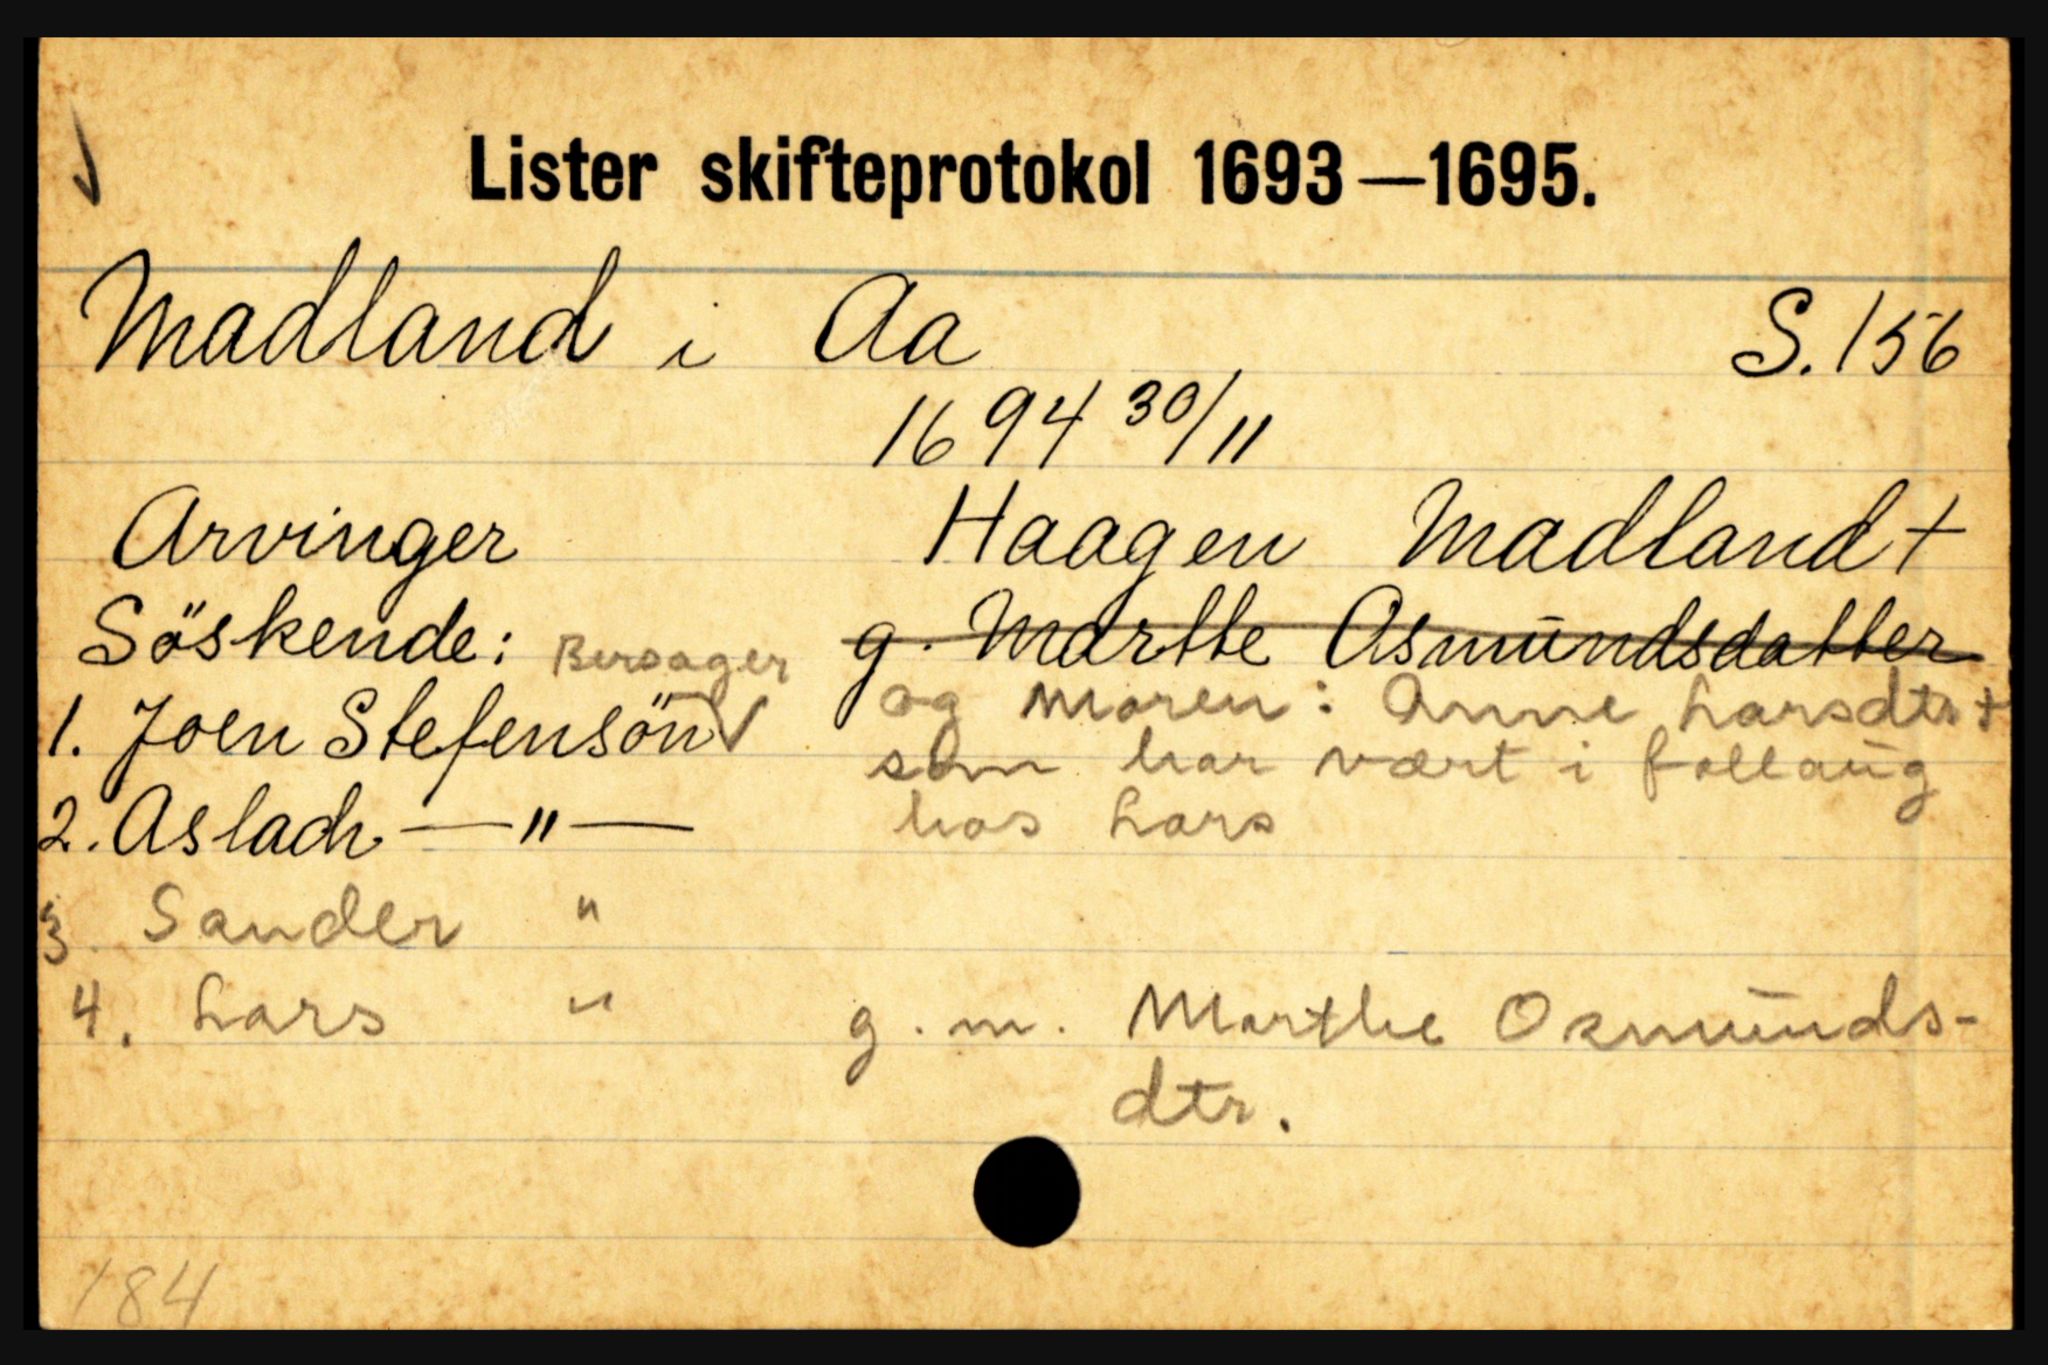 Lister skifteprotokol 1693—1695.
Madland i Aa S. 156
1694 30/11
Arvinger Haagen Madland +
Söskende: Bersager g. Marthe Asmundsdatter
1. Joen Stefensön √ og moren: Anne Larsdtr +
som har vært i follaug
2. Aslach —"— hos Lars
3. Sander "
4. Lars " g. m. Marthe Osmunds-
dtr.
184